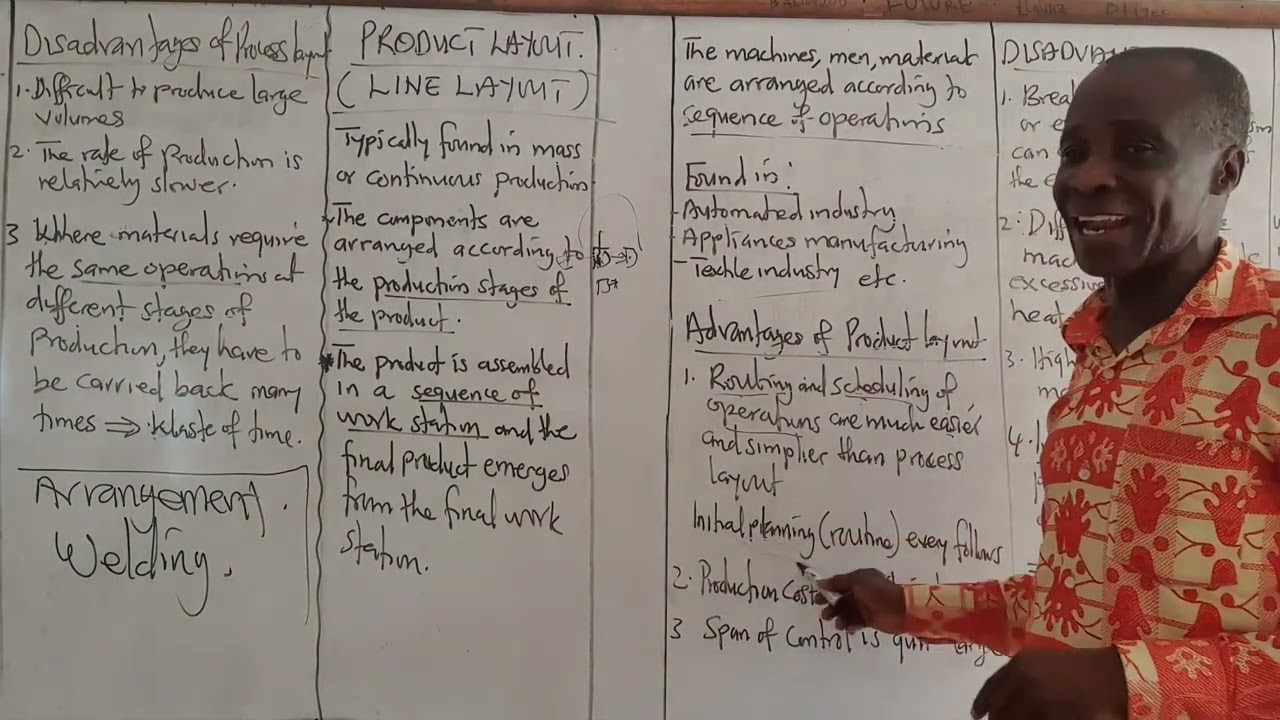 Disadvantages of Process layout
1. Difficult to produce large
volumes
2. The rate of Production is
relatively slower.
3 Where materials require
the same operations at
different stages of
Production, they have to
be carried back many
times ⇒ Waste of time.
Arrangement.
Welding.
PRODUCT LAYOUT.
(LINE LAYOUT)
Typically found in mass
or continuous production
*The components are
arranged according to
the production stages of
the product.
*The product is assembled
in a sequence of
work station and the
final product emerges
from the final work
station.
FUTURE
The machines, men, material
are arranged according to
sequence of operations
Found in:
- Automated industry
- Appliances manufacturing
- Textile industry etc.
Advantages of Product layout
1. Routing and scheduling of
operations are much easier
and simplier than process
layout
Initial planning (routine) every follows
2. Production cost
3 Span of control is
DISADVA
1.
or
can
the
2.
excessive
heat
3. High
4.